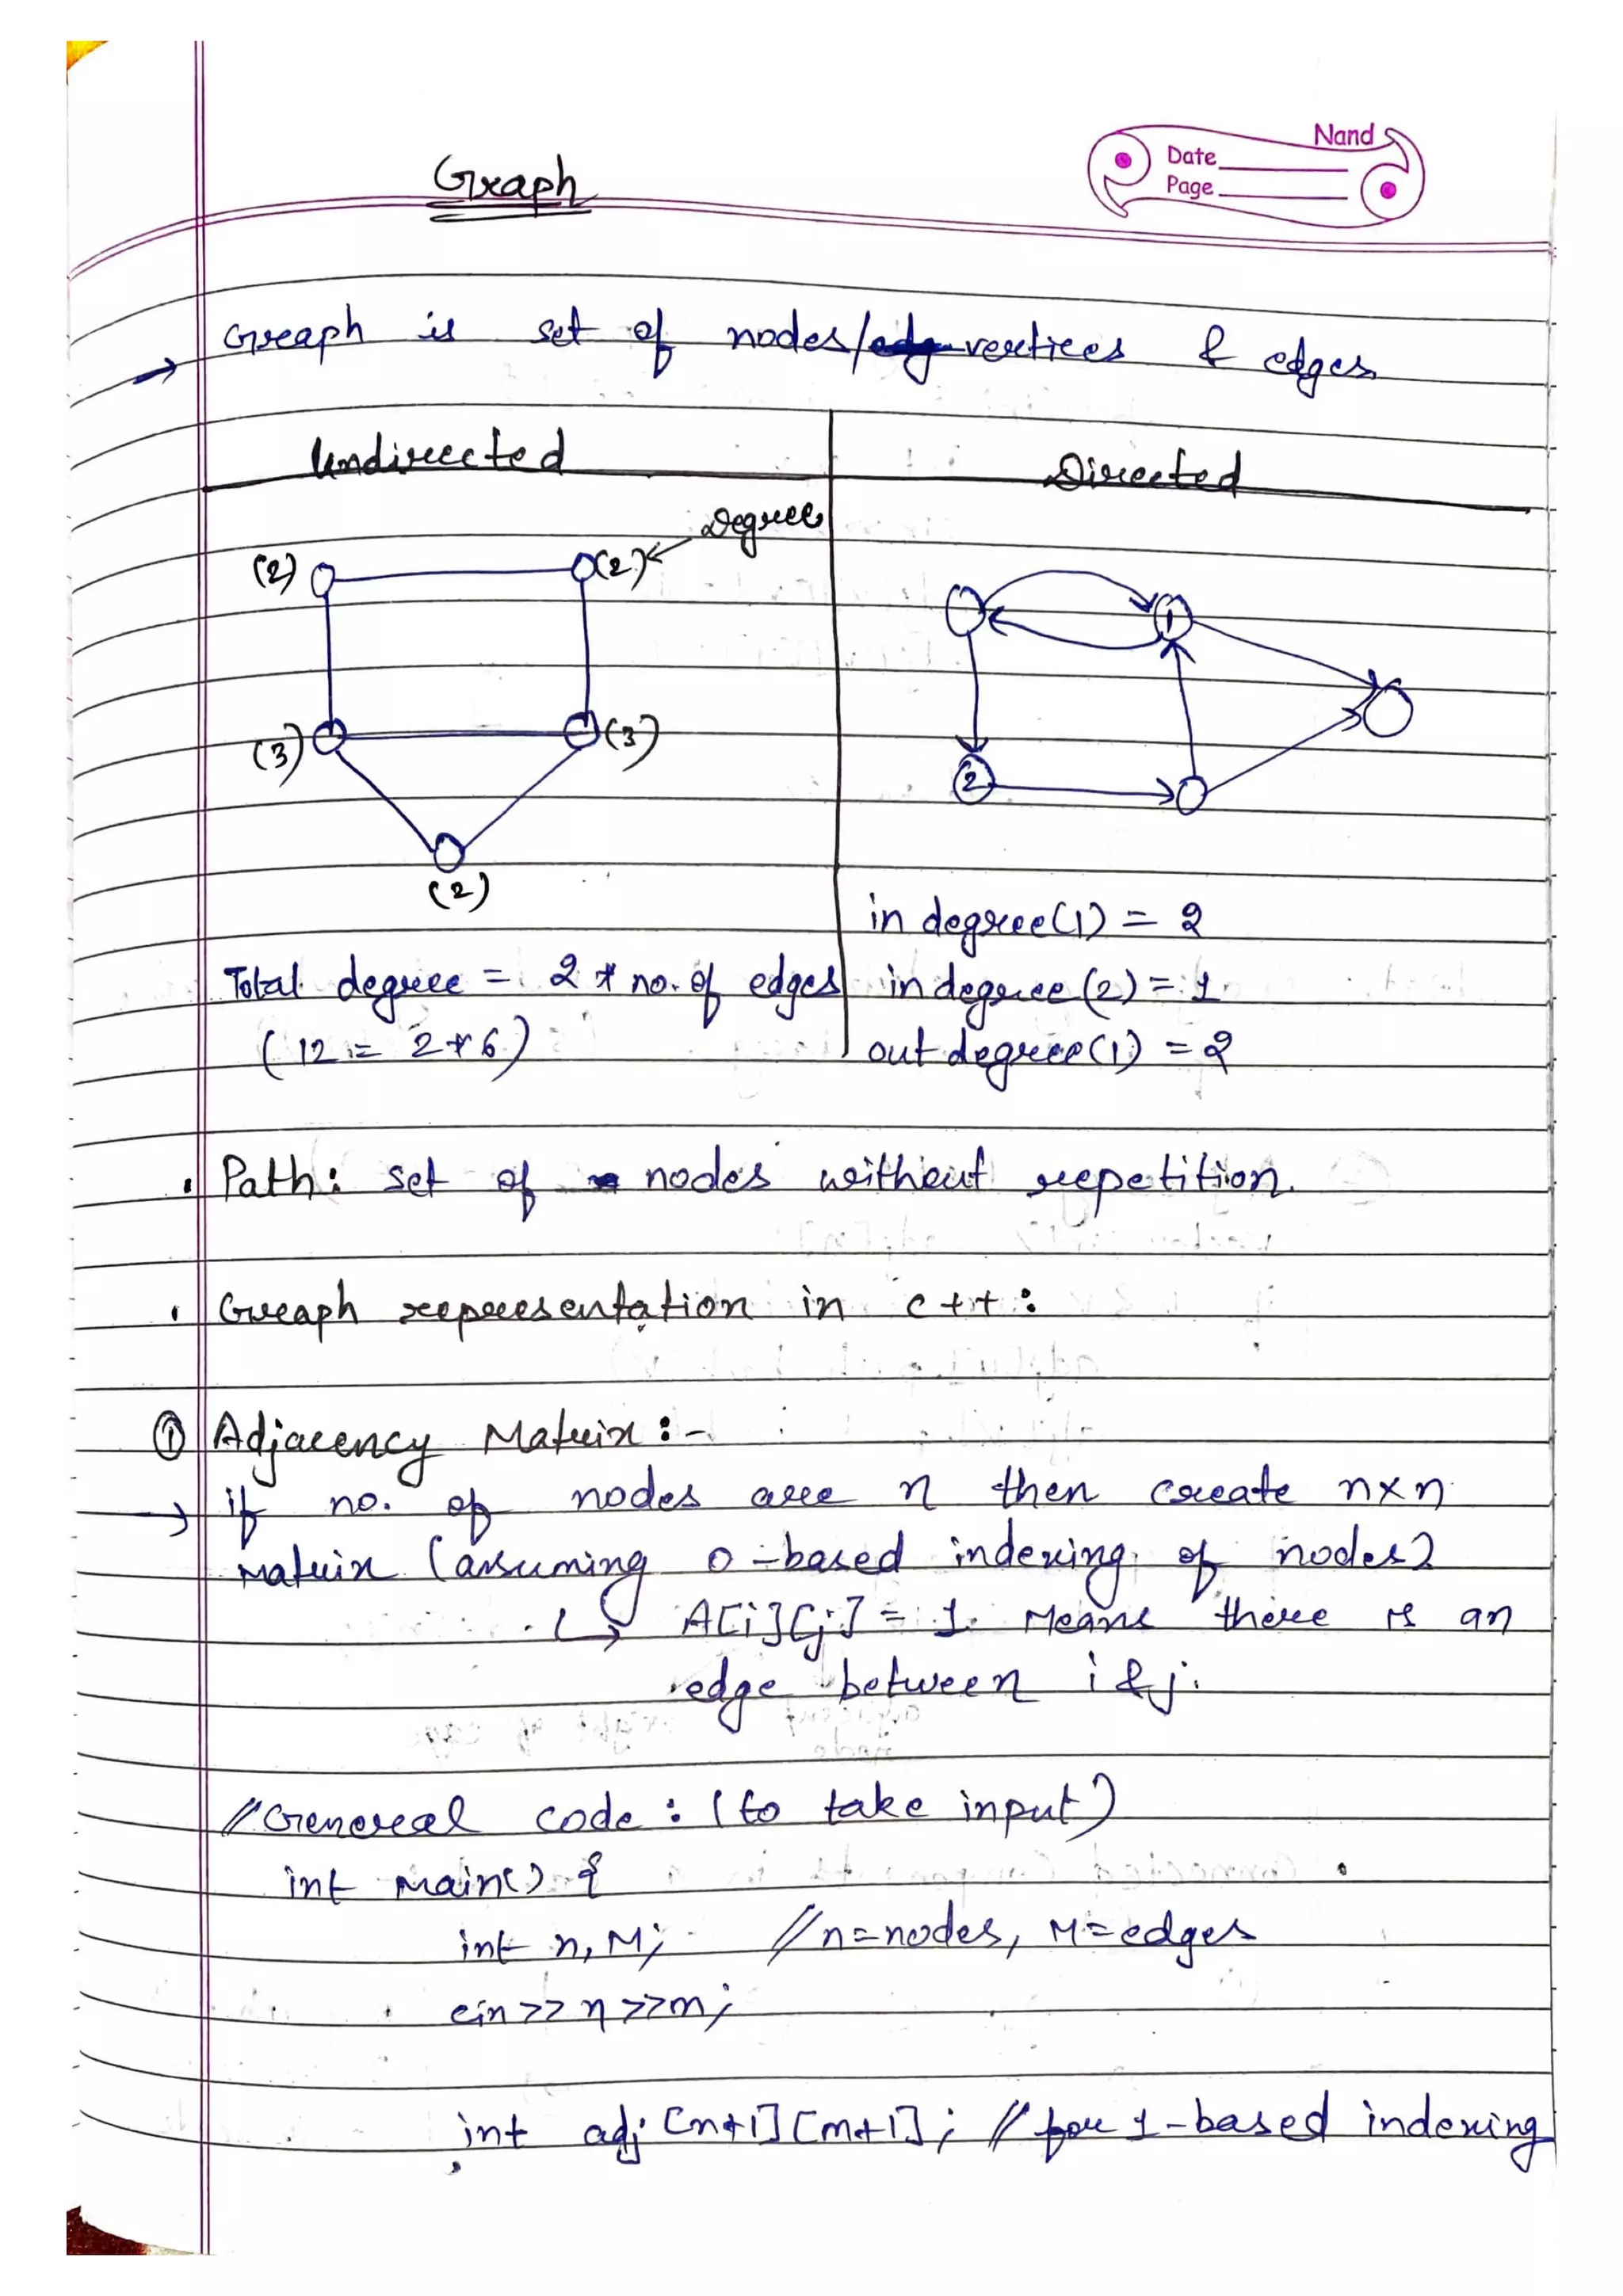 Nand
Date
Page
Graph
→ Graph is set of nodes/vertices & edges
Undirected
Directed
Degree
(2)
(2)
(3)
(3)
(2)
1
2
Total degree = 2 * no. of edges
(12 = 2*6)
in degree(1) = 2
in degree (2) = 1
out degree(1) = 2
• Path: set of nodes without repetition.
• Graph representation in c++ :
① Adjacency Matrix :-
→ if no. of nodes are n then create n×n
matrix (assuming 0-based indexing of nodes)
↳ A[i][j] = 1. Means there is an
edge between i & j.
// General code : (to take input)
int main() {
int n, M; // n=nodes, M=edges
cin>>n>>m;
int adj [n+1][m+1]; // for 1-based indexing